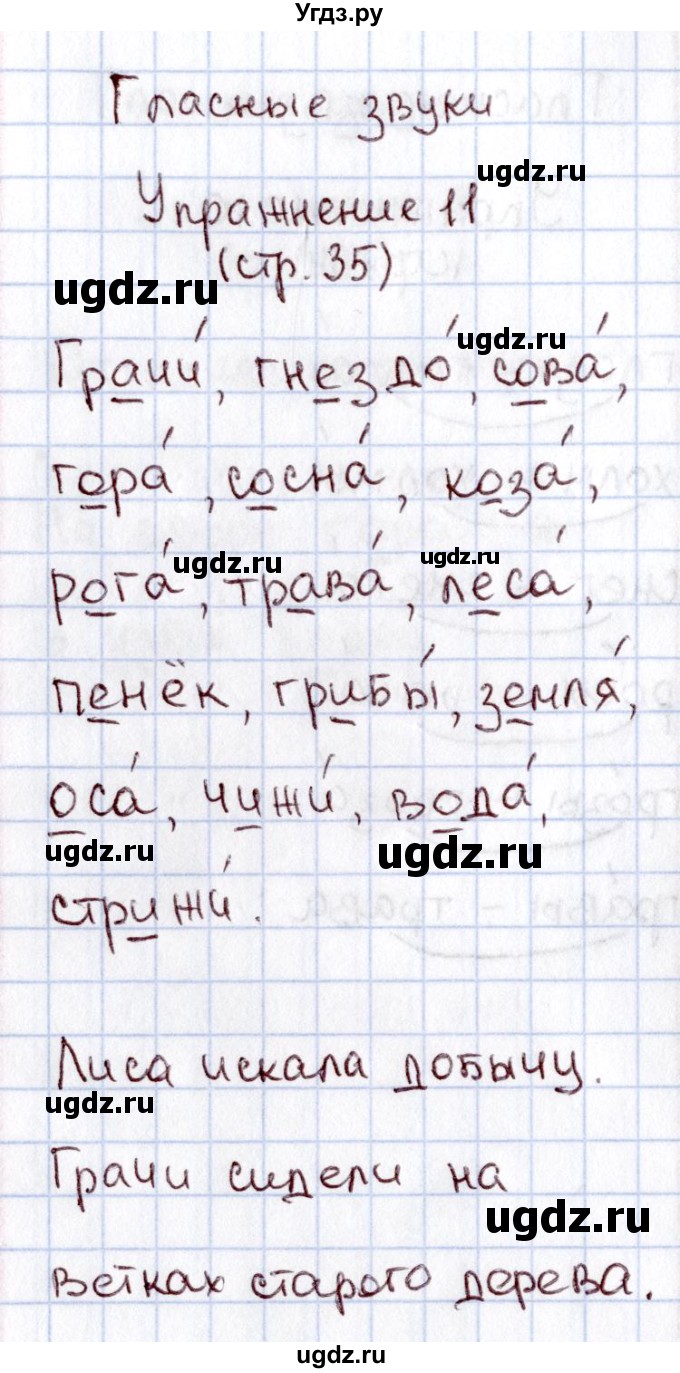 Угдз.ру
Гласные звуки
ugdz.ru
Упражнение 11
(стр. 35)
ugdz.ru
ugdz.ru
Грачи́, гнездо́, сова́,
гора́, сосна́, коза́,
ugdz.ru
ugdz.ru
рога́, трава́, леса́,
пенёк, грибы́, земля́,
оса́, чижи́, вода́,
ugdz.ru
ugdz.ru
стрижи́.
Лиса искала добычу.
ugdz.ru
Грачи сидели на
ugdz.ru
ветках старого дерева.
ugdz.ru